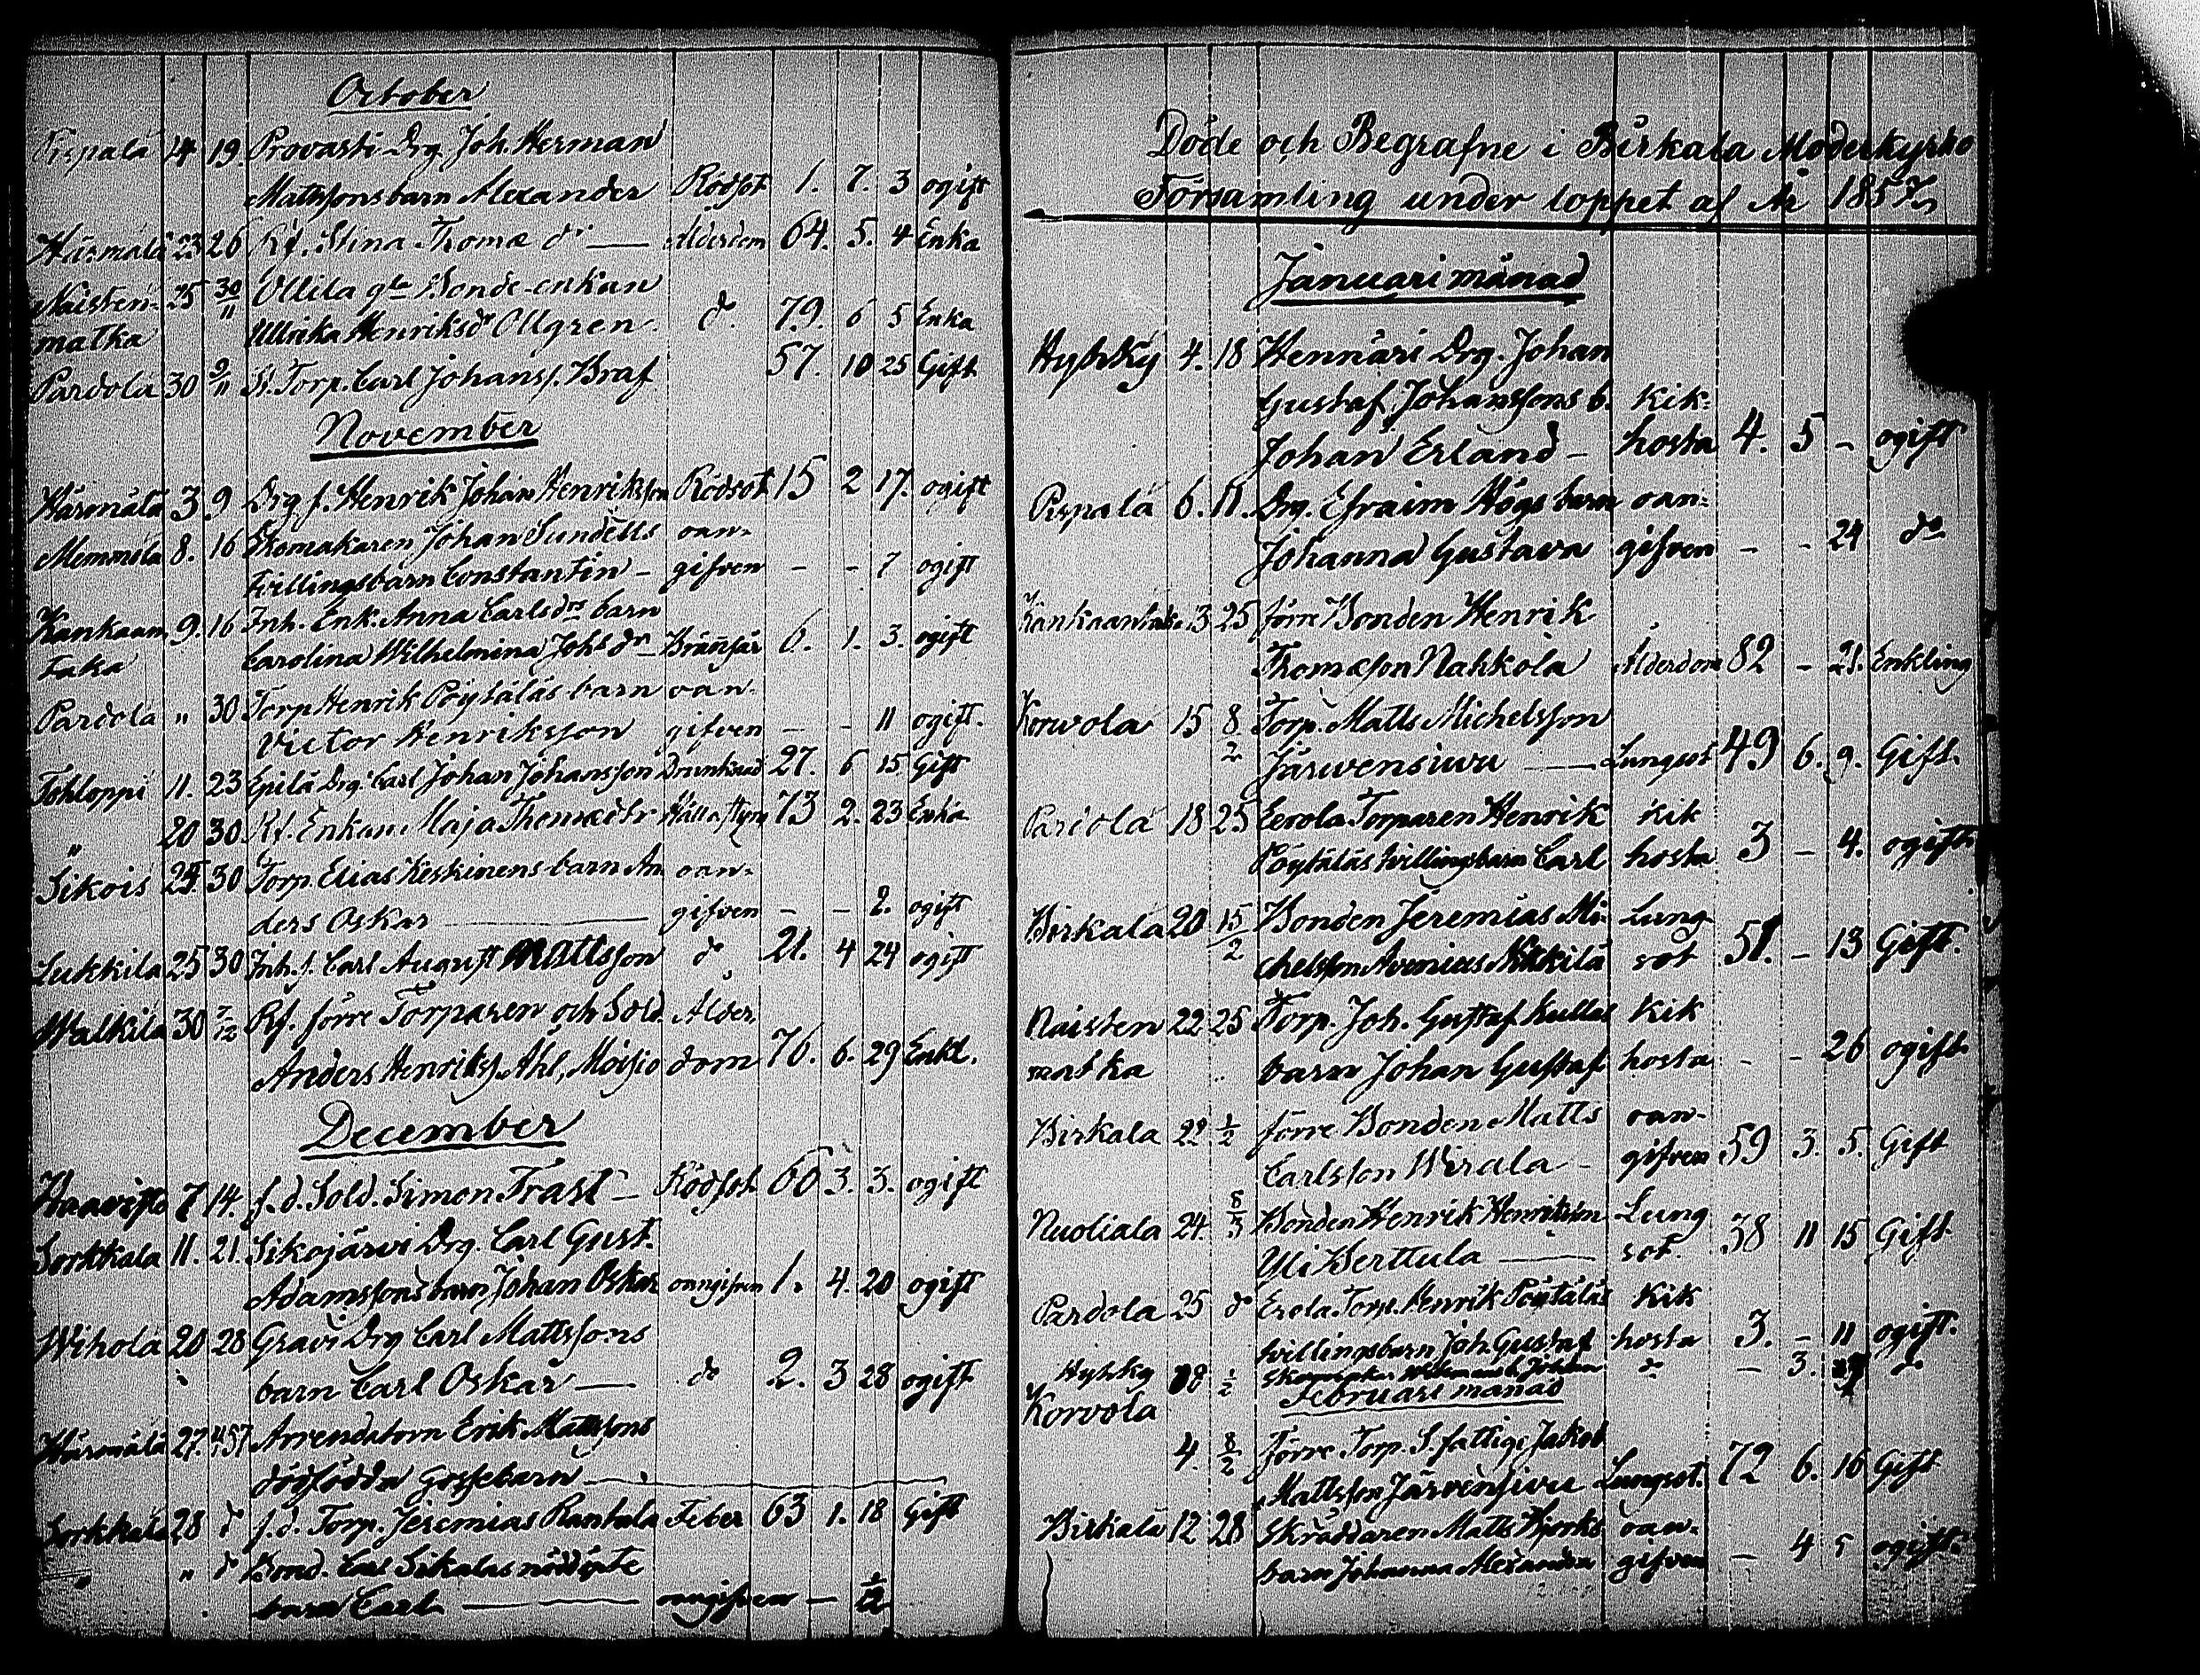 October
Pispala 14 19. Provasti Drg. Joh. Herman
Mattssons barn Alexander Rödsot 1. 7. 3 ogift
Härmälä 23 26 Rf. Stina Thomæ dr — Ålderdom 64. 5. 4 Enka
Naisten- 25 30/11 Ollila gla Bonde-enkan
matka Ullrika Henriksdr Ollgren do 79. 6 5 Enka
Pardola 30 9/11 St. Torp. Carl Johanss. Braf 57. 10 25 Gift
November
Härmälä 3 9 Drg f. Henrik Johan Henriksson Rödsot 15 2 17. ogift
Memmila 8. 16 Skomakaren Johan Sundells oan-
tvillingsbarn Constantin — gifven - - 7 ogift
Kankaan 9. 16 Inh. Enk. Anna Carlsdrs barn
taka Carolina Wilhelmina Johs dr — Brännsår 6. 1. 3. ogift
Pardola " 30 Torp Henrik Pöytäläs barn oan-
Victor Henriksson gifven — - 11 ogift.
Tohloppi 11. 23 Epilä Drg. Carl Johan Johansson Drunknad 27. 6 15 Gift
" 20 30 Rf. Enkan Maja Thomædtr Håll o styng 73 2. 23 Enka
Sikois 24 30 Torp. Elias Keskinens barn An oan-
ders Oskar — gifven - - 2. ogift
Lukkila 25 30 Inh. s. Carl August Mattsson do 21. 4 24 ogift
Walkila 30 7/12 Rf. förre Torparen och Sold. Ålder
Anders Henrikss. Ahl, Moisio dom 76. 6. 29 Enkl.
December
Haavisto 7 14. f. d. Sold. Simon Trast — Rödsot 60 3. 3. ogift
Sorkkala 11. 21. Sikojärvi Drg. Carl Gust.
Adamssons barn Johan Oskar oangifven 1. 4. 20 ogift
Wihola 20 28 Gravi Drg Carl Mattssons
barn Carl Oskar — do 2. 3 28 ogift
Härmälä 27. 4/1 57 Arrendatorn Erik Mattssons
dödfödda gossebarn —
Sorkkala 28 do f. d. Torp. Jeremias Rantala Feber 63 1. 18 Gift
" " do Bond. Carl Sikalas nöddöpte
barn Carl — oangifven — 1/2
Döde och Begrafne i Birkala Moderkyrko
Församling under loppet af År 1857
Januari månad
Hyhky 4. 18 Hennäri Drg. Johan
Gustaf Johanssons b. kik-
Johan Erland — hosta 4. 5 - ogift
Pispala 6. 11. Drg. Efraim Högs barn oan-
Johanna Gustava gifven - - 24 do
Kankaantaka 13 25 förre Bonden Henrik
Thomasson Nahkola Ålderdom 82 - 21. Enkling
Korvola 15 8/2 Torp. Matts Michelsson
Järwensivu — Lungsot 49 6. 9. Gift.
Pardola 18 25 Eerola Torparen Henrik kik
Pöytäläs tvillingsbarn Carl hosta 3 - 4. ogift
Birkala 20 15/2 Bonden Jeremias Mi- Lung
chelsson Avenius Kukkilä sot 51. - 13 Gift.
Naisten 22 25 Torp. Joh. Gustaf Kullas Kik
matka barn Johan Gustaf hosta - - 26 ogift
Birkala 22 1/2 förre Bonden Matts oan-
Carlsson Wirala - gifven 59 3. 5. Gift
Nuoliala 24. 8/3 Bonden Henrik Henriksson Lung
Yli Herttula — sot. 38 11 15 Gift
Pardola 25 do Erola Torp. Henrik Pöytäläs Kik
tvillingsbarn Joh. Gustaf hosta 3. - 11 ogift.
Hyhky 28 1/2 Johan do - 3. do
Februari månad
Korvola
4. 8/2 Förre Torp. S. fattige Jakob
Mattsson Järvensivu Lungsot. 72 6. 16 Gift
Birkala 12 28 Skräddaren Matts Bjorks oan-
barn Johanna Alexandra gifven — 4 5 ogift.